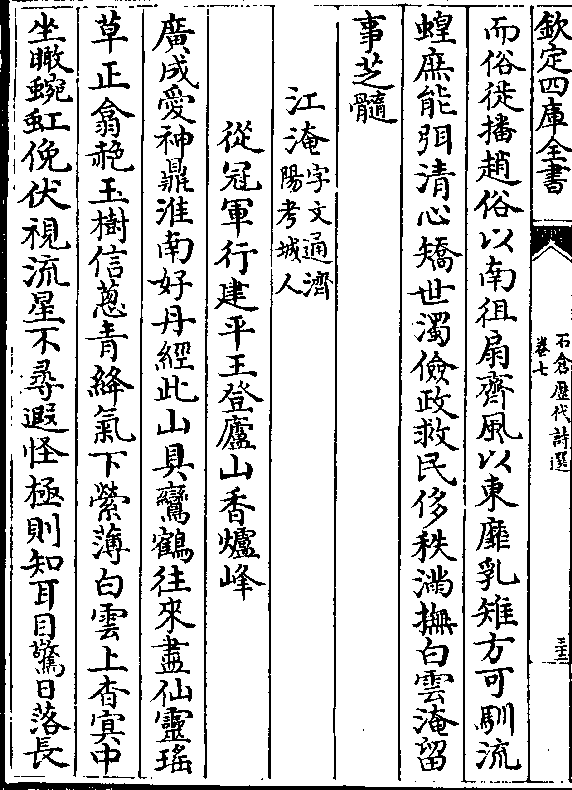 欽定四庫全書
石倉歷代詩選
卷七
三十三
而俗徙播趙俗以南徂扇齊風以東靡乳雉方可馴流
蝗庶能弭清心矯世濁儉政救民侈秩滿撫白雲淹留
事芝髓
江淹字文通濟
陽考城人
從冠軍行建平王登廬山香爐峰
廣成愛神鼎淮南好丹經此山具鸞鶴往來盡仙靈瑤
草正翕赩玉樹信葱青絳氣下縈薄白雲上杳冥中
坐瞰蜿虹俛伏視流星不尋遐怪極則知耳目驚日落長